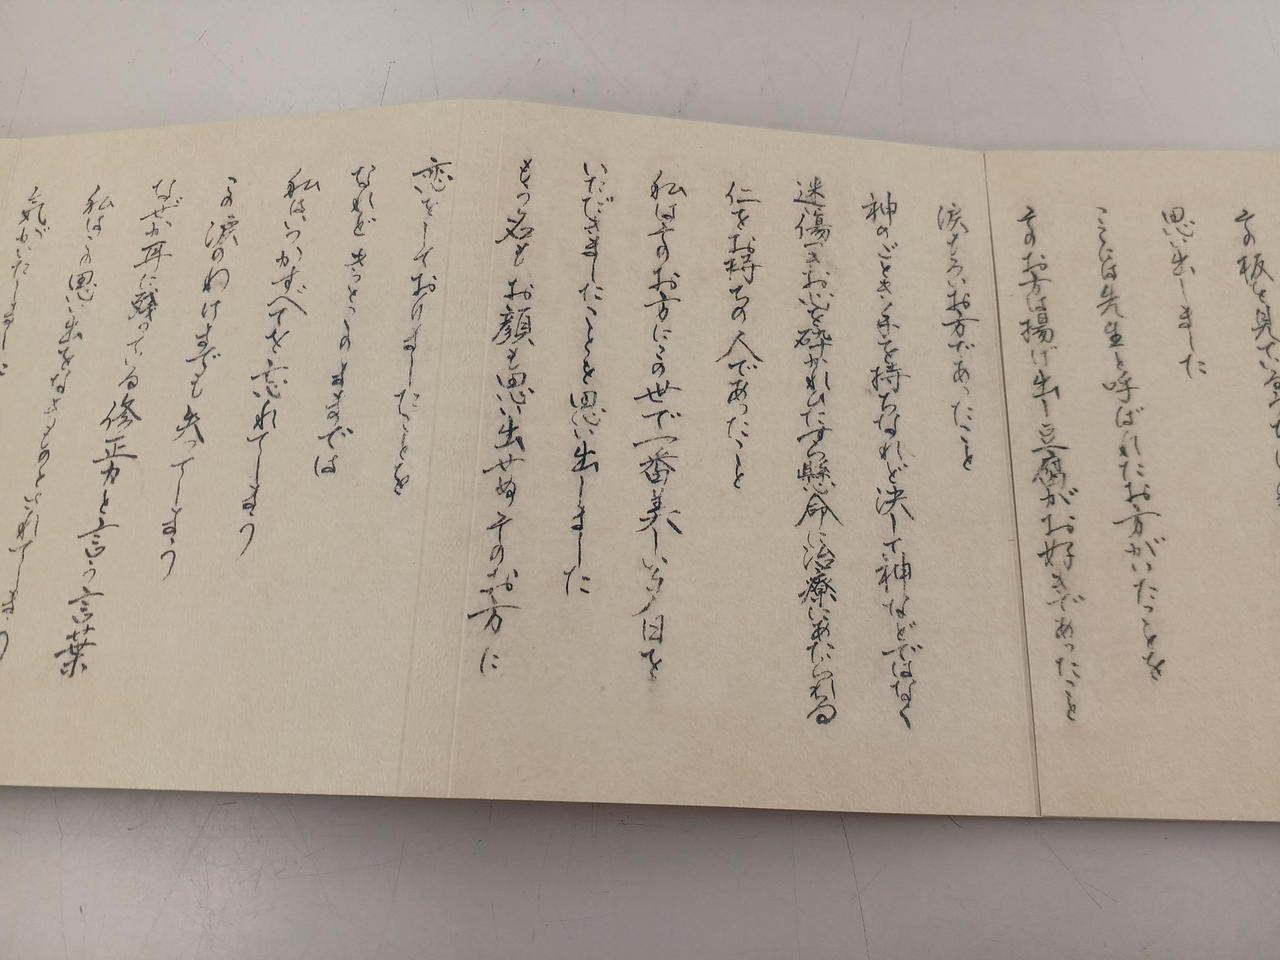 その板を見て
思い出しました
ここには先生と呼ばれたお方がいたことを
そのお方は揚げ出し豆腐がお好きであったこと
涙もろいお方であったこと
神のごとき手を持ちなれど決して神などではなく
迷傷つきお心を砕かれひたすら懸命に治療にあたられる
仁をお持ちの人であったこと
私はそのお方にこの世で一番美しい夕日を
いただきましたことを思い出しました
もう名もお顔も思い出せぬそのお方に
恋をしておりましたことを
なれどきっとこのままでは
私はいつかすべてを忘れてしまう
この涙のわけまでも失ってしまう
なぜか耳に残っている修正力と言う言葉
私はこの思い出をなきものとされてしまう
気がいたしました